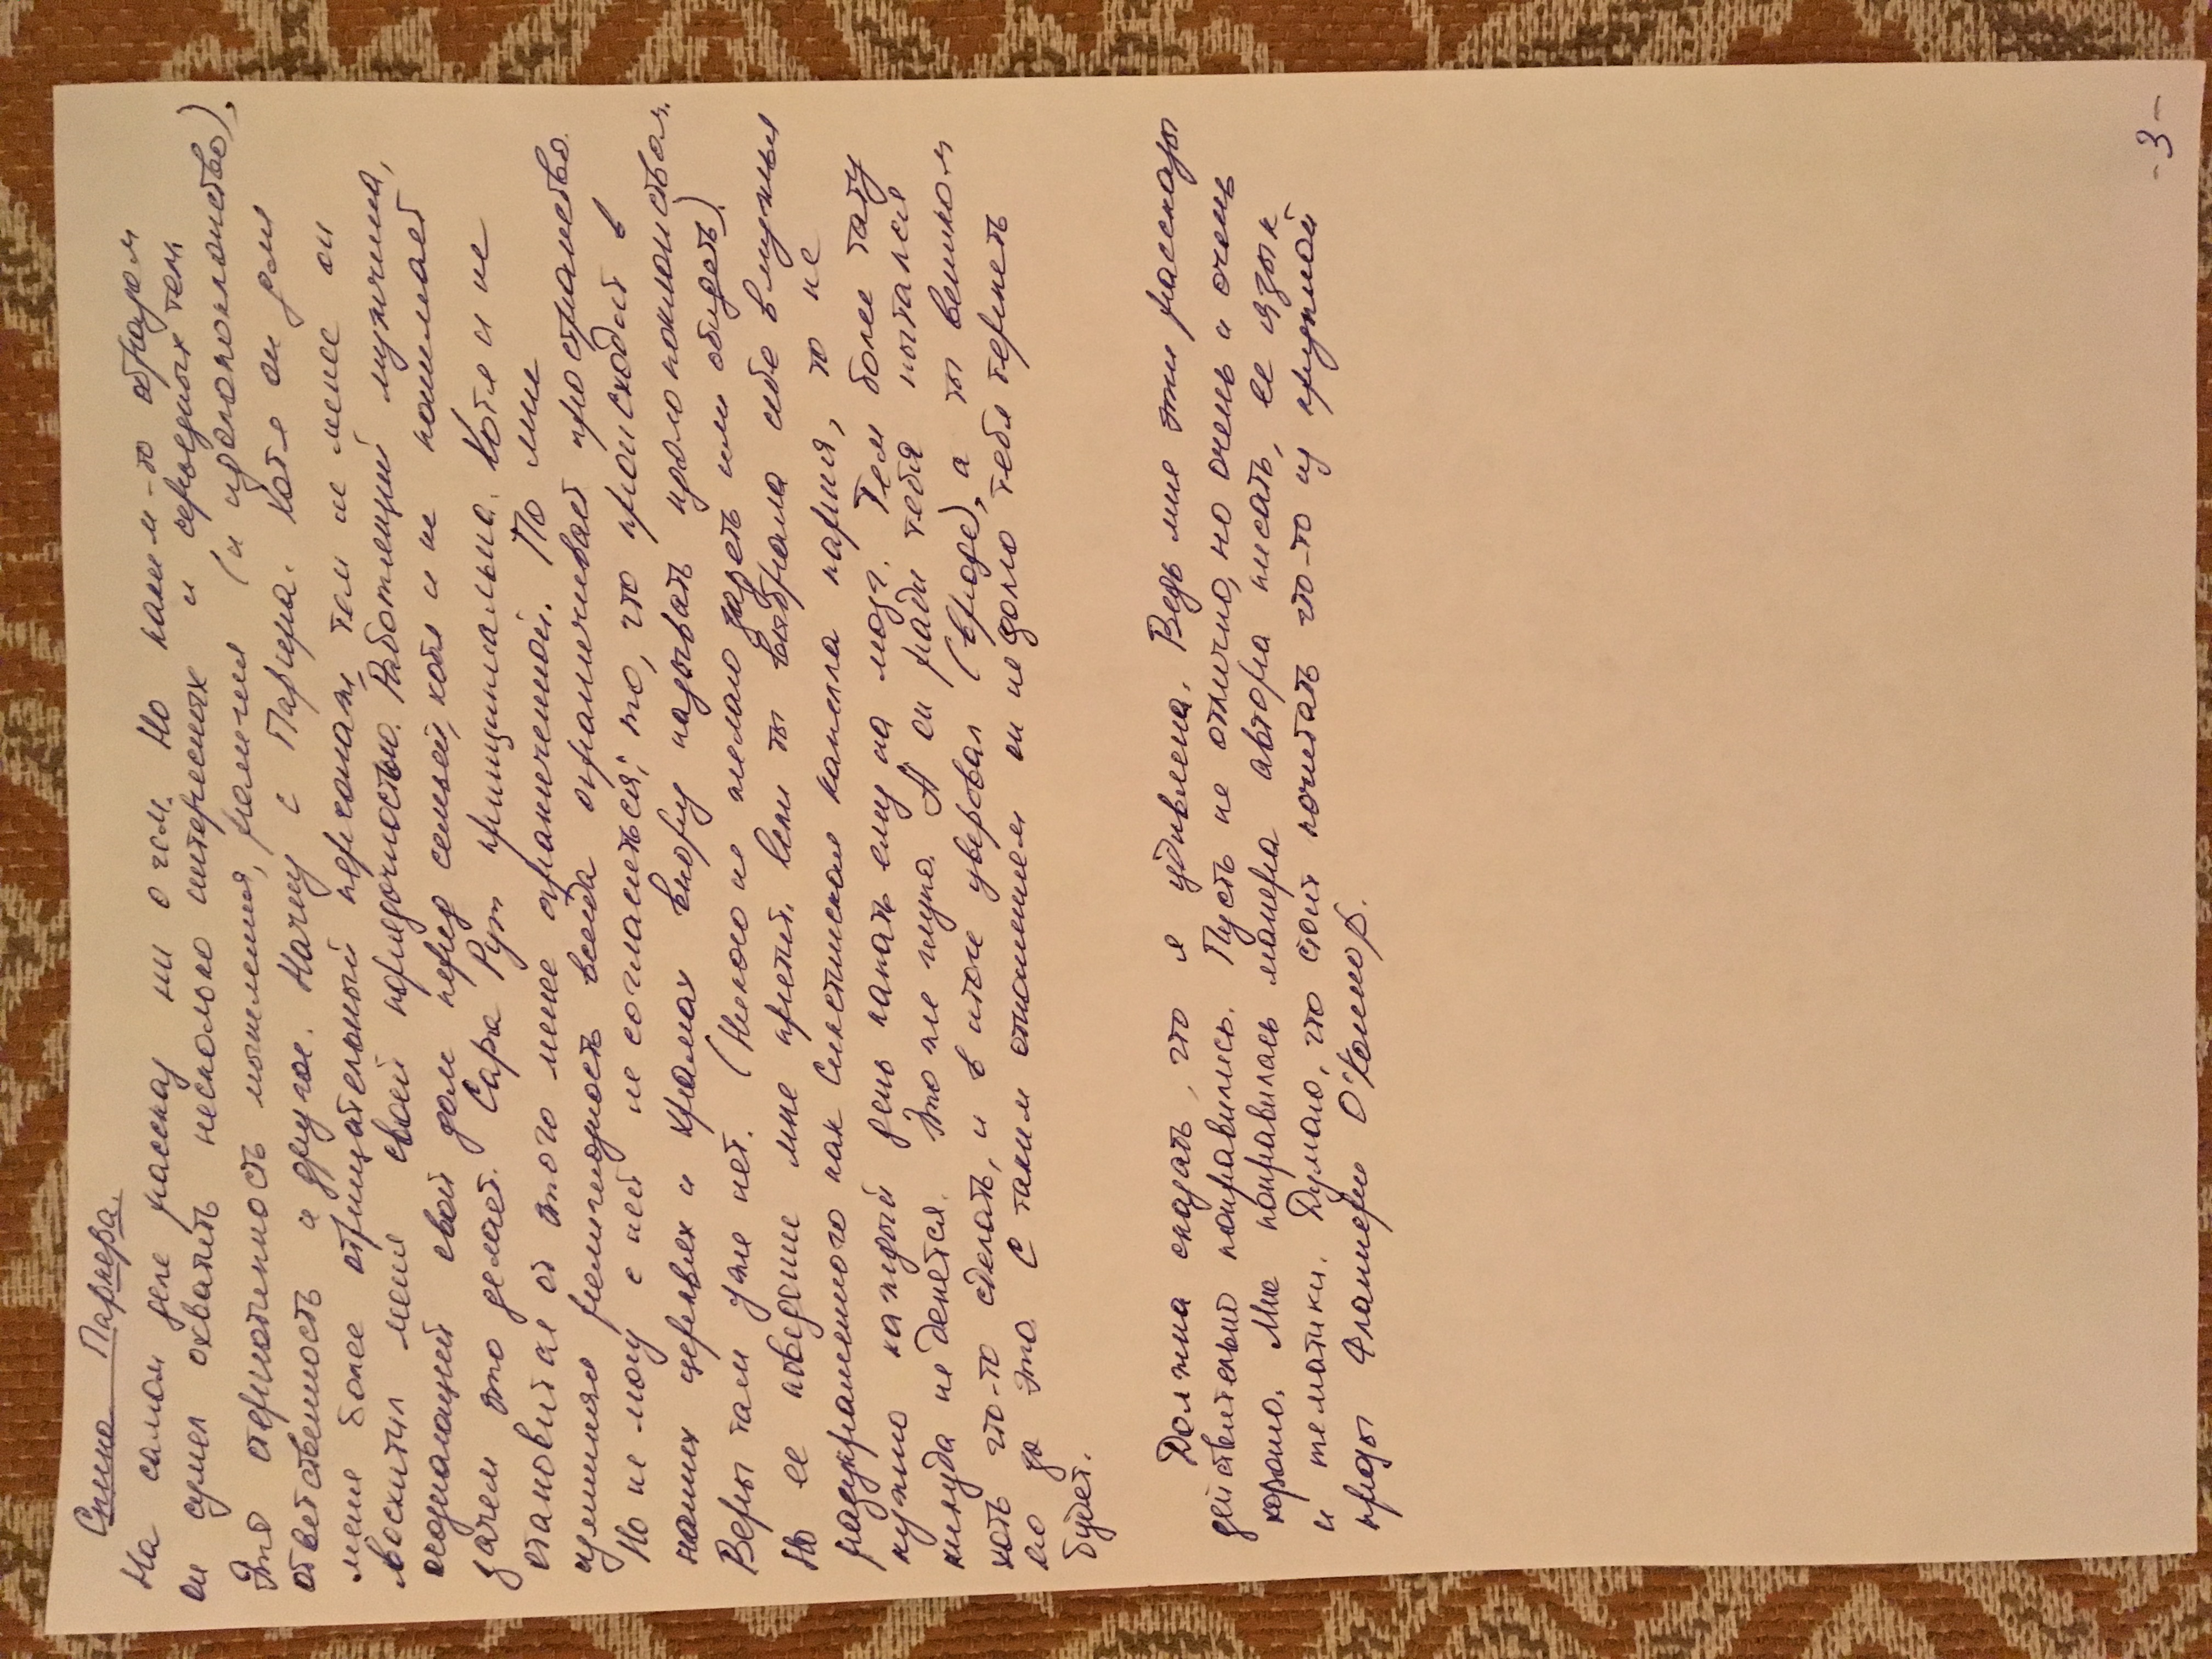 Спина Паркера.
На самом деле рассказ ни о чем. Но каким-то образом
он сумел охватить несколько интересных и серьезных тем
Это стереотипность мышления, религия (и идолопоклонство),
ответственность и другое. Начну с Паркера. Хотя он для
меня более отрицательный персонаж, тем не менее он
восхитил меня своей порядочностью. Работящий мужчина,
осознающий свой долг перед семьей, хотя и не понимает
зачем это делает. Сара Рут принципиальна. Хотя и не
становится от этого менее ограниченной. По мне
излишняя религиозность всегда ограничивает пространство.
Но не могу с ней не согласиться; то, что происходит в
наших церквях и храмах впору называть идолопоклонством.
Веры там уже нет. (Никого не желаю задеть или обидеть).
Но ее поведение мне претит. Если ты выбрала себе в мужья
разукрашенного как Сикстинская капелла парня, то не
нужно каждый день капать ему на мозг. Тем более тату
никуда не денется. Это же глупо. А он ради тебя пытался
хоть что-то сделать, и в итоге уверовал (вроде), а ты веником
его за это. С таким отношением он недолго тебя терпеть
будет.
Должна сказать, что я удивлена. Ведь мне эти рассказы
действительно понравились. Пусть не отлично, но очень и очень
хорошо. Мне понравилась манера автора писать, ее язык
и тематики. Думаю, что стоит почитать что-то из крупной
прозы Фланнери О'Коннор.
-3-